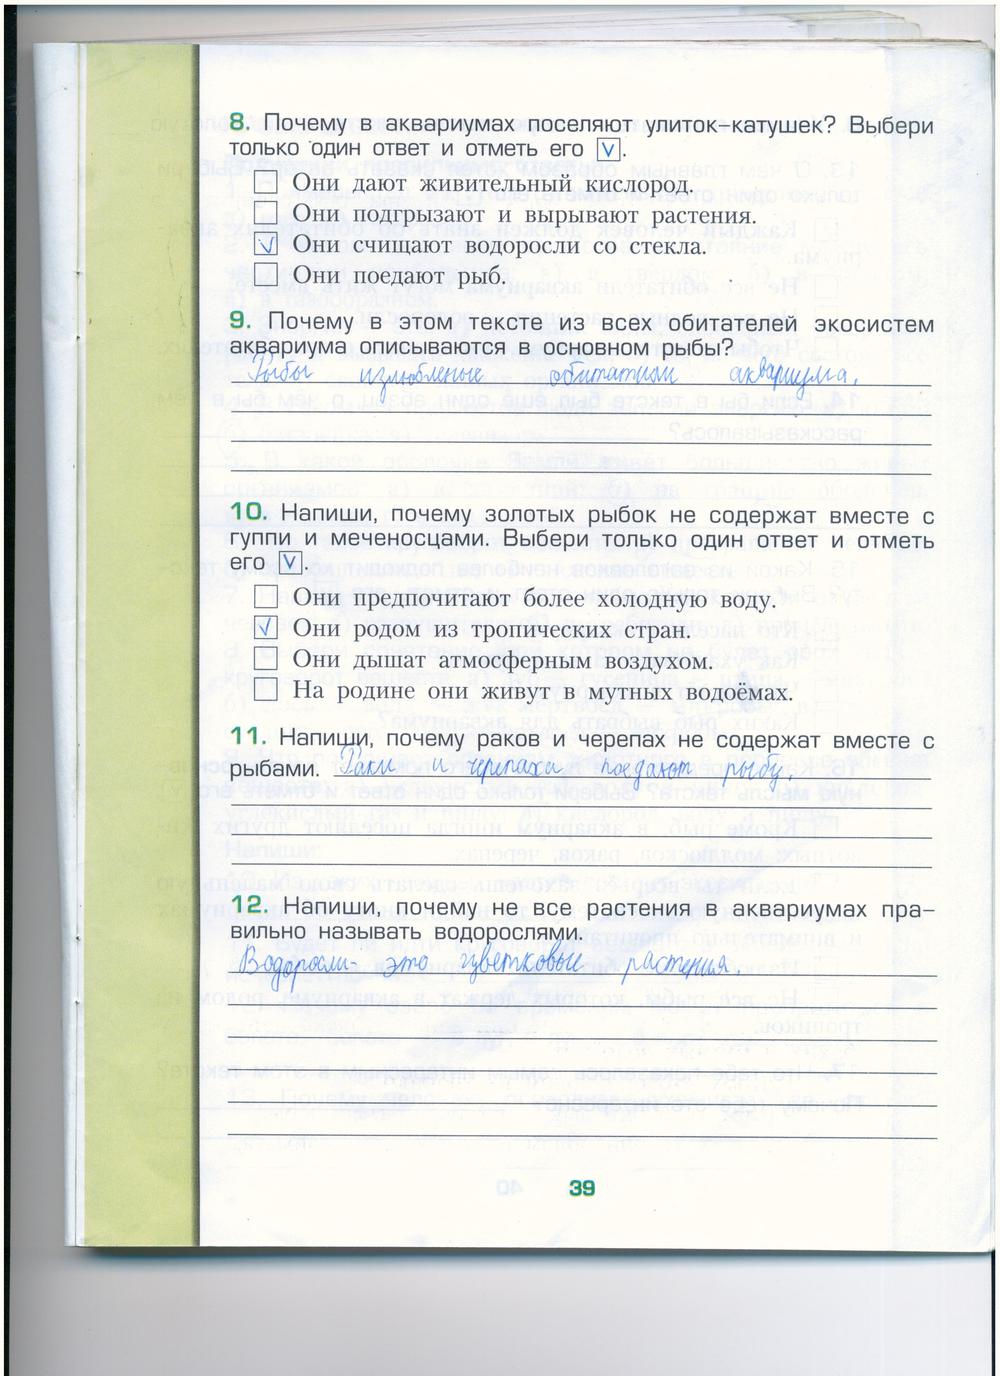 8. Почему в аквариумах поселяют улиток-катушек? Выбери
только один ответ и отметь его v.
Они дают живительный кислород.
Они подгрызают и вырывают растения.
v Они счищают водоросли со стекла.
Они поедают рыб.
9. Почему в этом тексте из всех обитателей экосистем
аквариума описываются в основном рыбы?
Рыбы излюбленые обитатили аквариума.
10. Напиши, почему золотых рыбок не содержат вместе с
гуппи и меченосцами. Выбери только один ответ и отметь
его v.
Они предпочитают более холодную воду.
v Они родом из тропических стран.
Они дышат атмосферным воздухом.
На родине они живут в мутных водоёмах.
11. Напиши, почему раков и черепах не содержат вместе с
рыбами. Раки и черепахи поедают рыбу.
12. Напиши, почему не все растения в аквариумах пра-
вильно называть водорослями.
Водоросли- это цветковые растения.
39